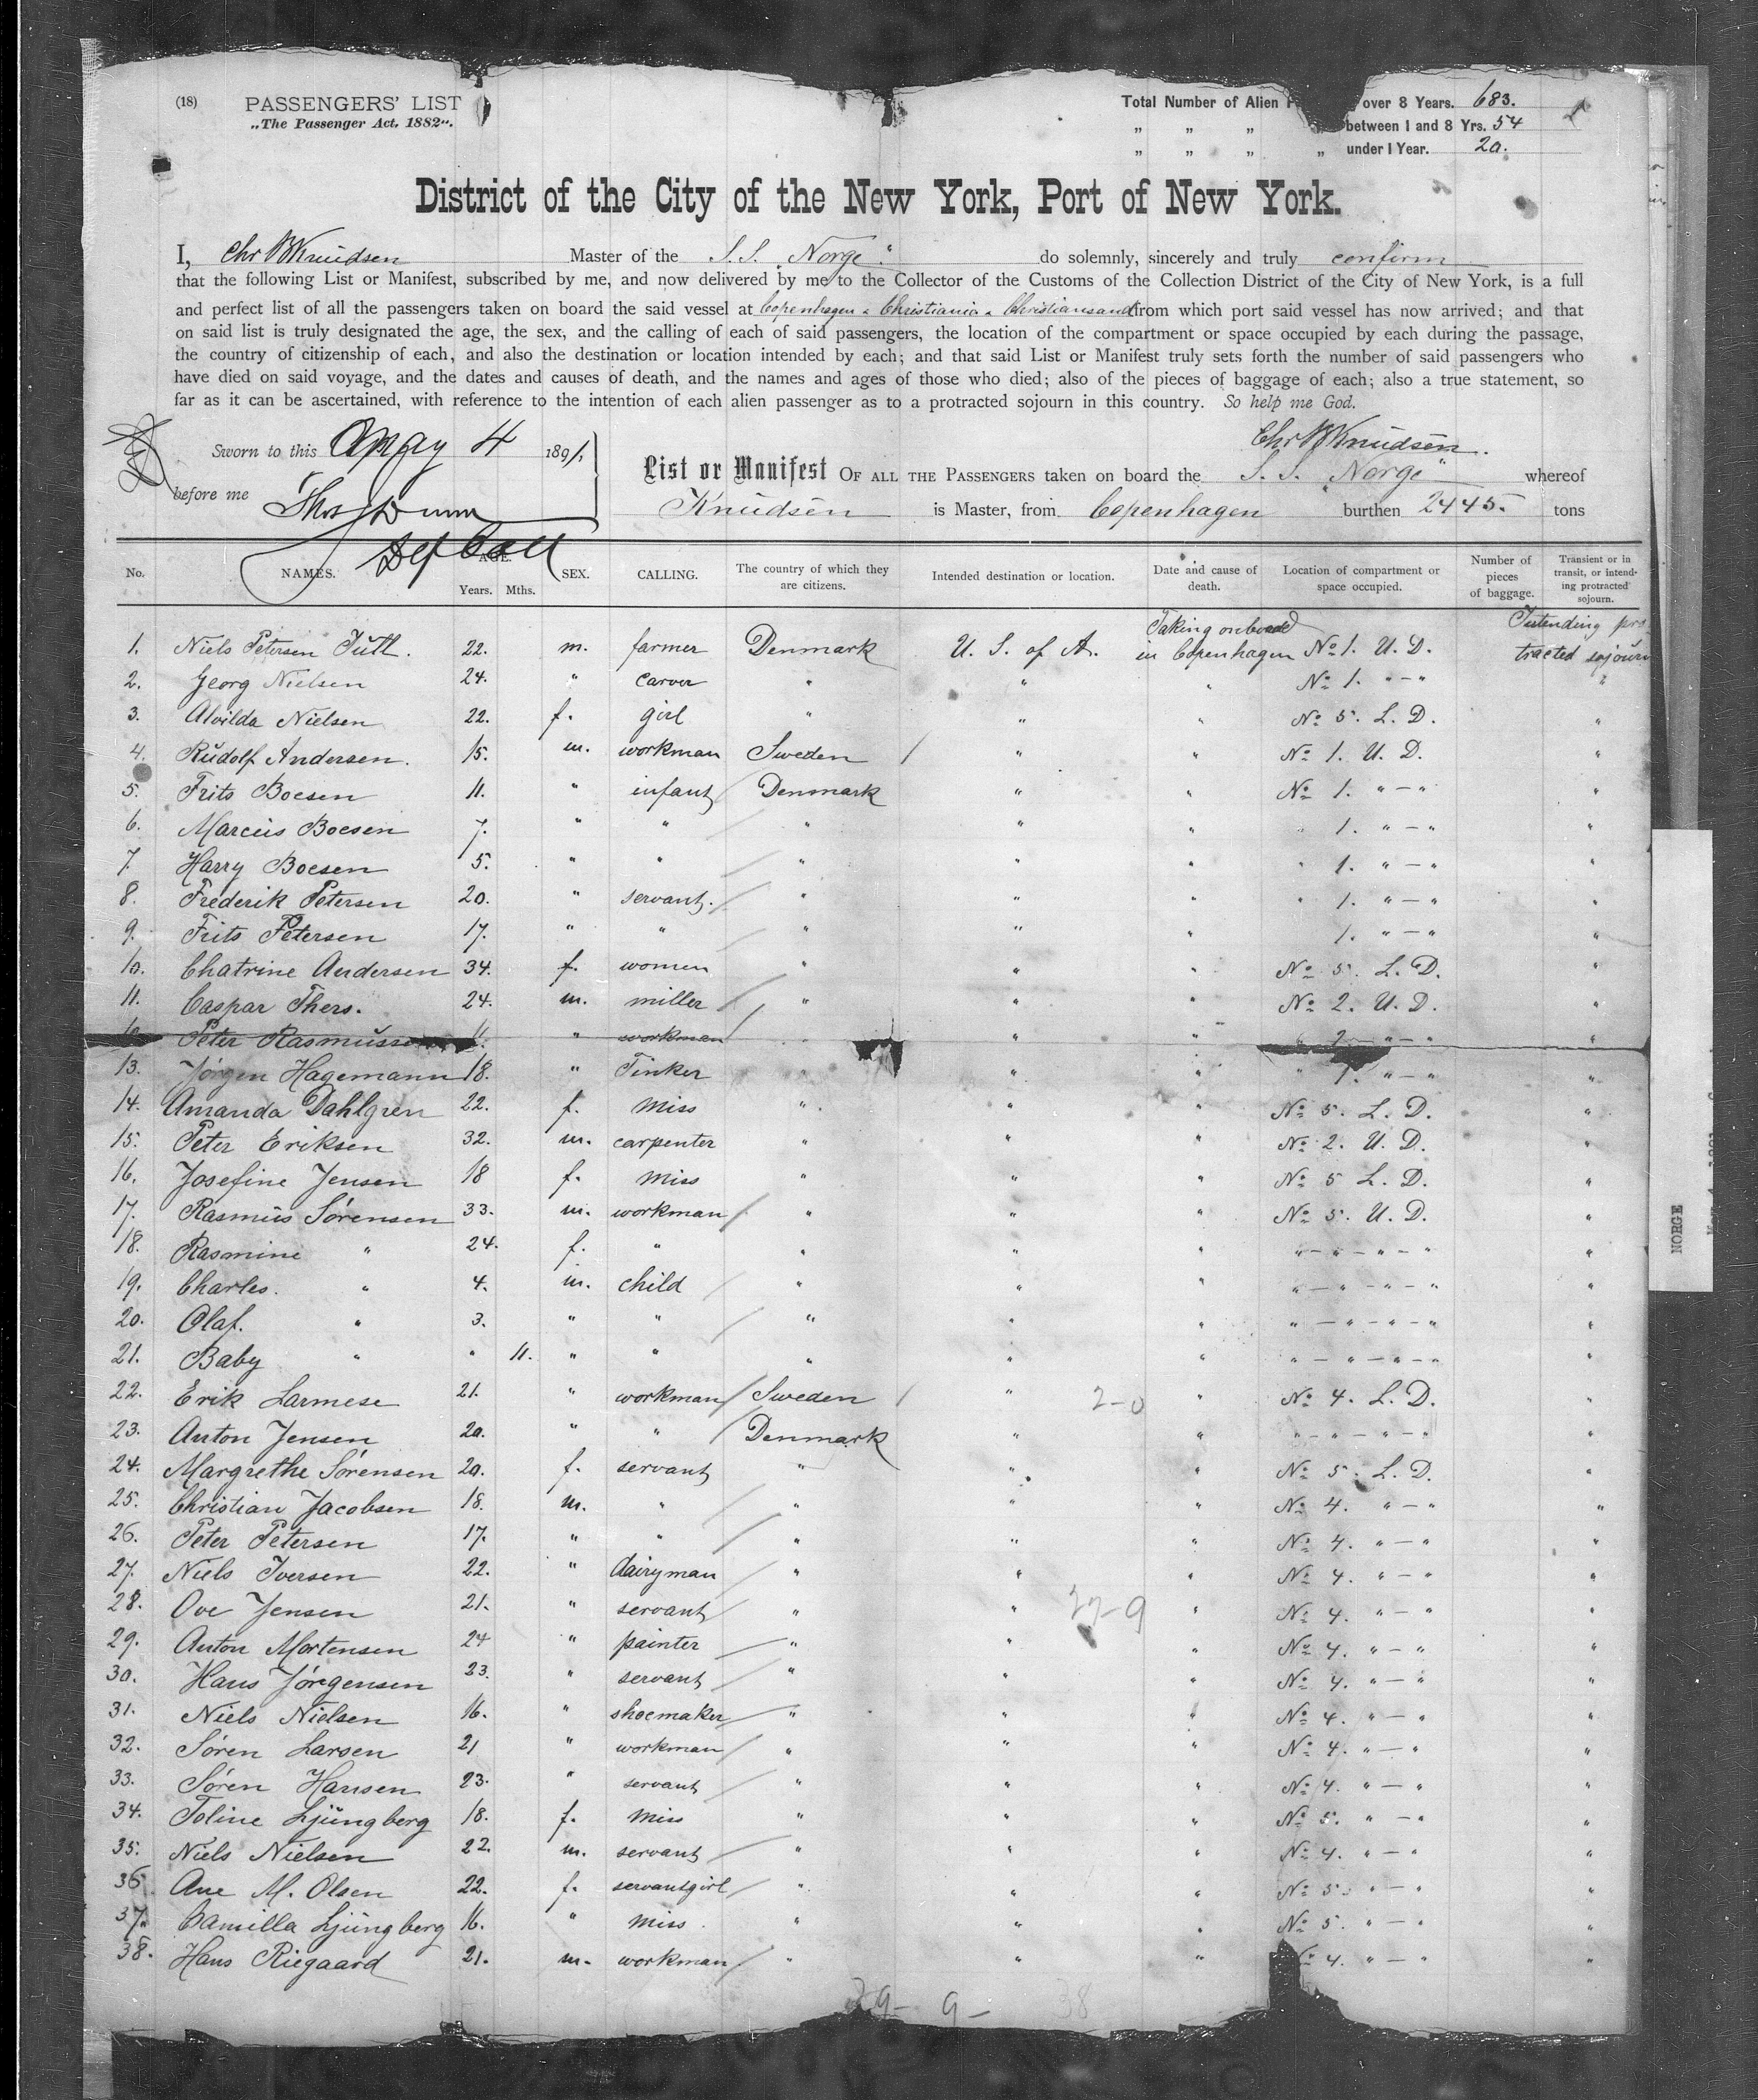 (18) PASSENGERS' LIST
„The Passenger Act, 1882“.
Total Number of Alien P over 8 Years. 683.
„ „ „ between 1 and 8 Yrs. 54
„ „ „ „ under 1 Year. 20.
District of the City of the New York, Port of New York.
I, Chr Knudsen Master of the S.S. „Norge“ do solemnly, sincerely and truly confirm
that the following List or Manifest, subscribed by me, and now delivered by me to the Collector of the Customs of the Collection District of the City of New York, is a full
and perfect list of all the passengers taken on board the said vessel at Copenhagen, Christiania, Christiansand from which port said vessel has now arrived; and that
on said list is truly designated the age, the sex, and the calling of each of said passengers, the location of the compartment or space occupied by each during the passage,
the country of citizenship of each, and also the destination or location intended by each; and that said List or Manifest truly sets forth the number of said passengers who
have died on said voyage, and the dates and causes of death, and the names and ages of those who died; also of the pieces of baggage of each; also a true statement, so
far as it can be ascertained, with reference to the intention of each alien passenger as to a protracted sojourn in this country. So help me God.
Chr Knudsen.
Sworn to this May 4 1891
before me Thos Dunn
Dep Coll
List or Manifest OF ALL THE PASSENGERS taken on board the S. S. „Norge“ whereof
Knudsen is Master, from Copenhagen burthen 2445. tons
No. NAMES. AGE. Years. Mths. SEX. CALLING. The country of which they are citizens. Intended destination or location. Date and cause of death. Location of compartment or space occupied. Number of pieces of baggage. Transient or in transit, or intending protracted sojourn.
1. Niels Petersen Jutl. 22. m. farmer Denmark U. S. of A. Taking onboard in Copenhagen No 1. U. D. Intending protracted sojourn
2. Georg Nielsen 24. " carver " " " No 1. " – " "
3. Alvilda Nielsen 22. f. girl " " " No 5. L. D. "
4. Rudolf Andersen. 15. m. workman Sweden / " " No 1. U. D. "
5. Frits Boesen 11. " infant Denmark " " No 1. " – " "
6. Marcus Boesen 7. " " " " " " 1. " – " "
7. Harry Boesen 5. " " " " " " 1. " – " "
8. Frederik Petersen 20. " servant. " " " " 1. " – " "
9. Frits Petersen 17. " " " " " 1. " – " "
10. Chatrine Andersen 34. f. women " " " No 5. L. D. "
11. Caspar Thers. 24. m. miller " " " No 2. U. D. "
Peter Rasmusse 11. " workman " " " " 2. " – " "
13. Jörgen Hagemann 18. " Tinker " " " " 1. " – " "
14. Amanda Dahlgren 22. f. Miss " " " No 5. L. D. "
15. Peter Eriksen 32. m. carpenter " " " No 2. U. D. "
16. Josefine Jensen 18 f. Miss " " " No 5 L. D. "
17. Rasmus Sörensen 33. m. workman " " " No 5. U. D. "
18. Rasmine " 24. f. " " " " " – " – " – " "
19. Charles. " 4. m. child " " " " – " – " – " "
20. Olaf. " 3. " " " " " " – " – " – " "
21. Baby " " 11. " " " " " " – " – " – " "
22. Erik Larmese 21. " workman Sweden / " 2-0 " No 4. L. D. "
23. Anton Jensen 20. " " Denmark " " " – " – " – " "
24. Margrethe Sörensen 20. f. servant " " " No 5. L. D. "
25. Christian Jacobsen 18. m. " " " " No 4. " – " "
26. Peter Petersen 17. " " " " " No 4. " – " "
27. Niels Iversen 22. " dairyman " " " No 4. " – " "
28. Ove Jensen 21. " servant " " " No 4. " – " "
29. Anton Mortensen 24 " painter " " " No 4. " – " "
30. Hans Jörgensen 23. " servant " " " No 4. " – " "
31. Niels Nielsen 16. " shoemaker " " " No 4. " – " "
32. Sören Larsen 21 " workman " " " No 4. " – " "
33. Sören Hansen 23. " servant " " " No 4. " – " "
34. Toline Ljungberg 18. f. Miss " " " No 5. " – " "
35. Niels Nielsen 22. m. servant " " " No 4. " – " "
36. Ane M. Olsen 22. f. servantgirl " " " No 5. " – " "
37. Camilla Ljungberg 16. " Miss. " " " No 5. " – " "
38. Hans Riegaard 21. m. workman " " " No 4. " – " "
9- 38
NORGE